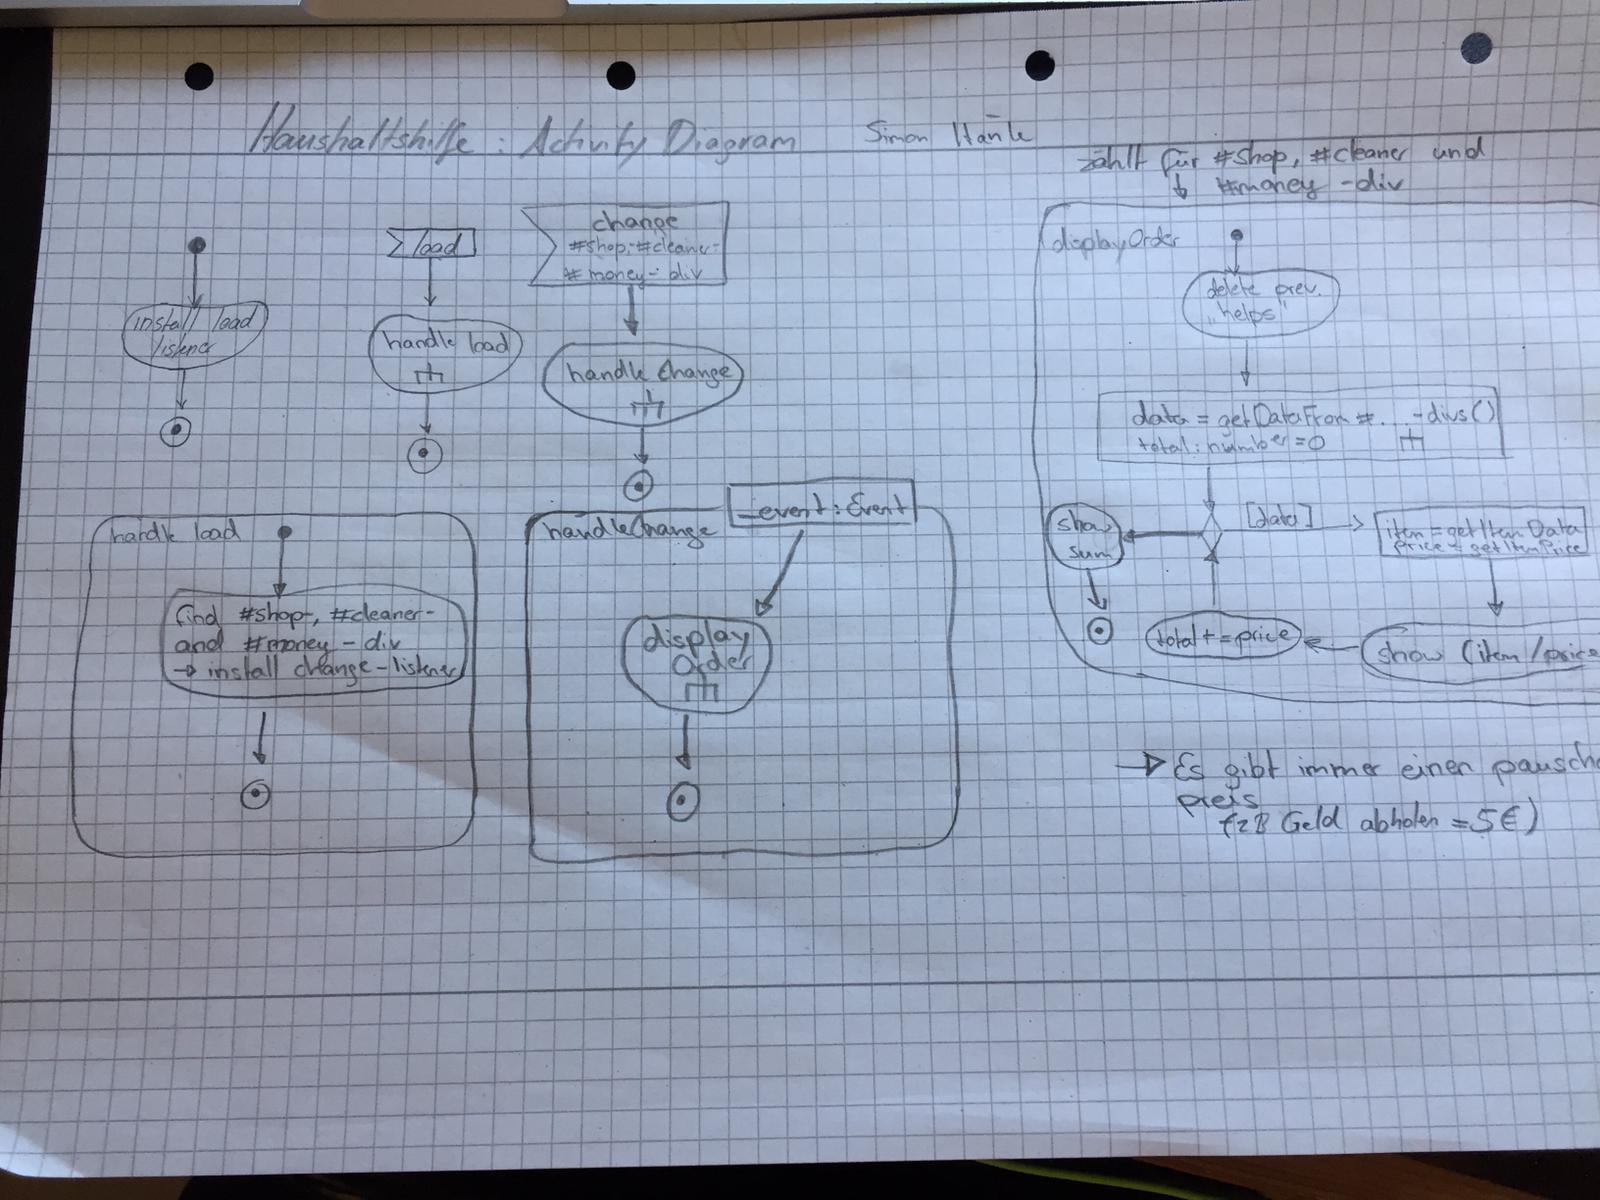 Haushaltshilfe : Activity Diagram
Simon Hänle
zählt für #shop, #cleaner und
#money -div
install load
listener
load
handle load
change
#shop-#cleaner-
#money- div
handle Change
handle load
find #shop-, #cleaner-
and #money-div
→ install change-listener
handleChange
_event: Event
display
Order
displayOrder
delete prev.
„helps"
data = getDataFrom #...-divs()
total: number = 0
[data]
show
sum
item = getItemData
Price = getItemPrice
total += price
show (item/price
→ Es gibt immer einen pausch
preis
(zB Geld abholen = 5€)